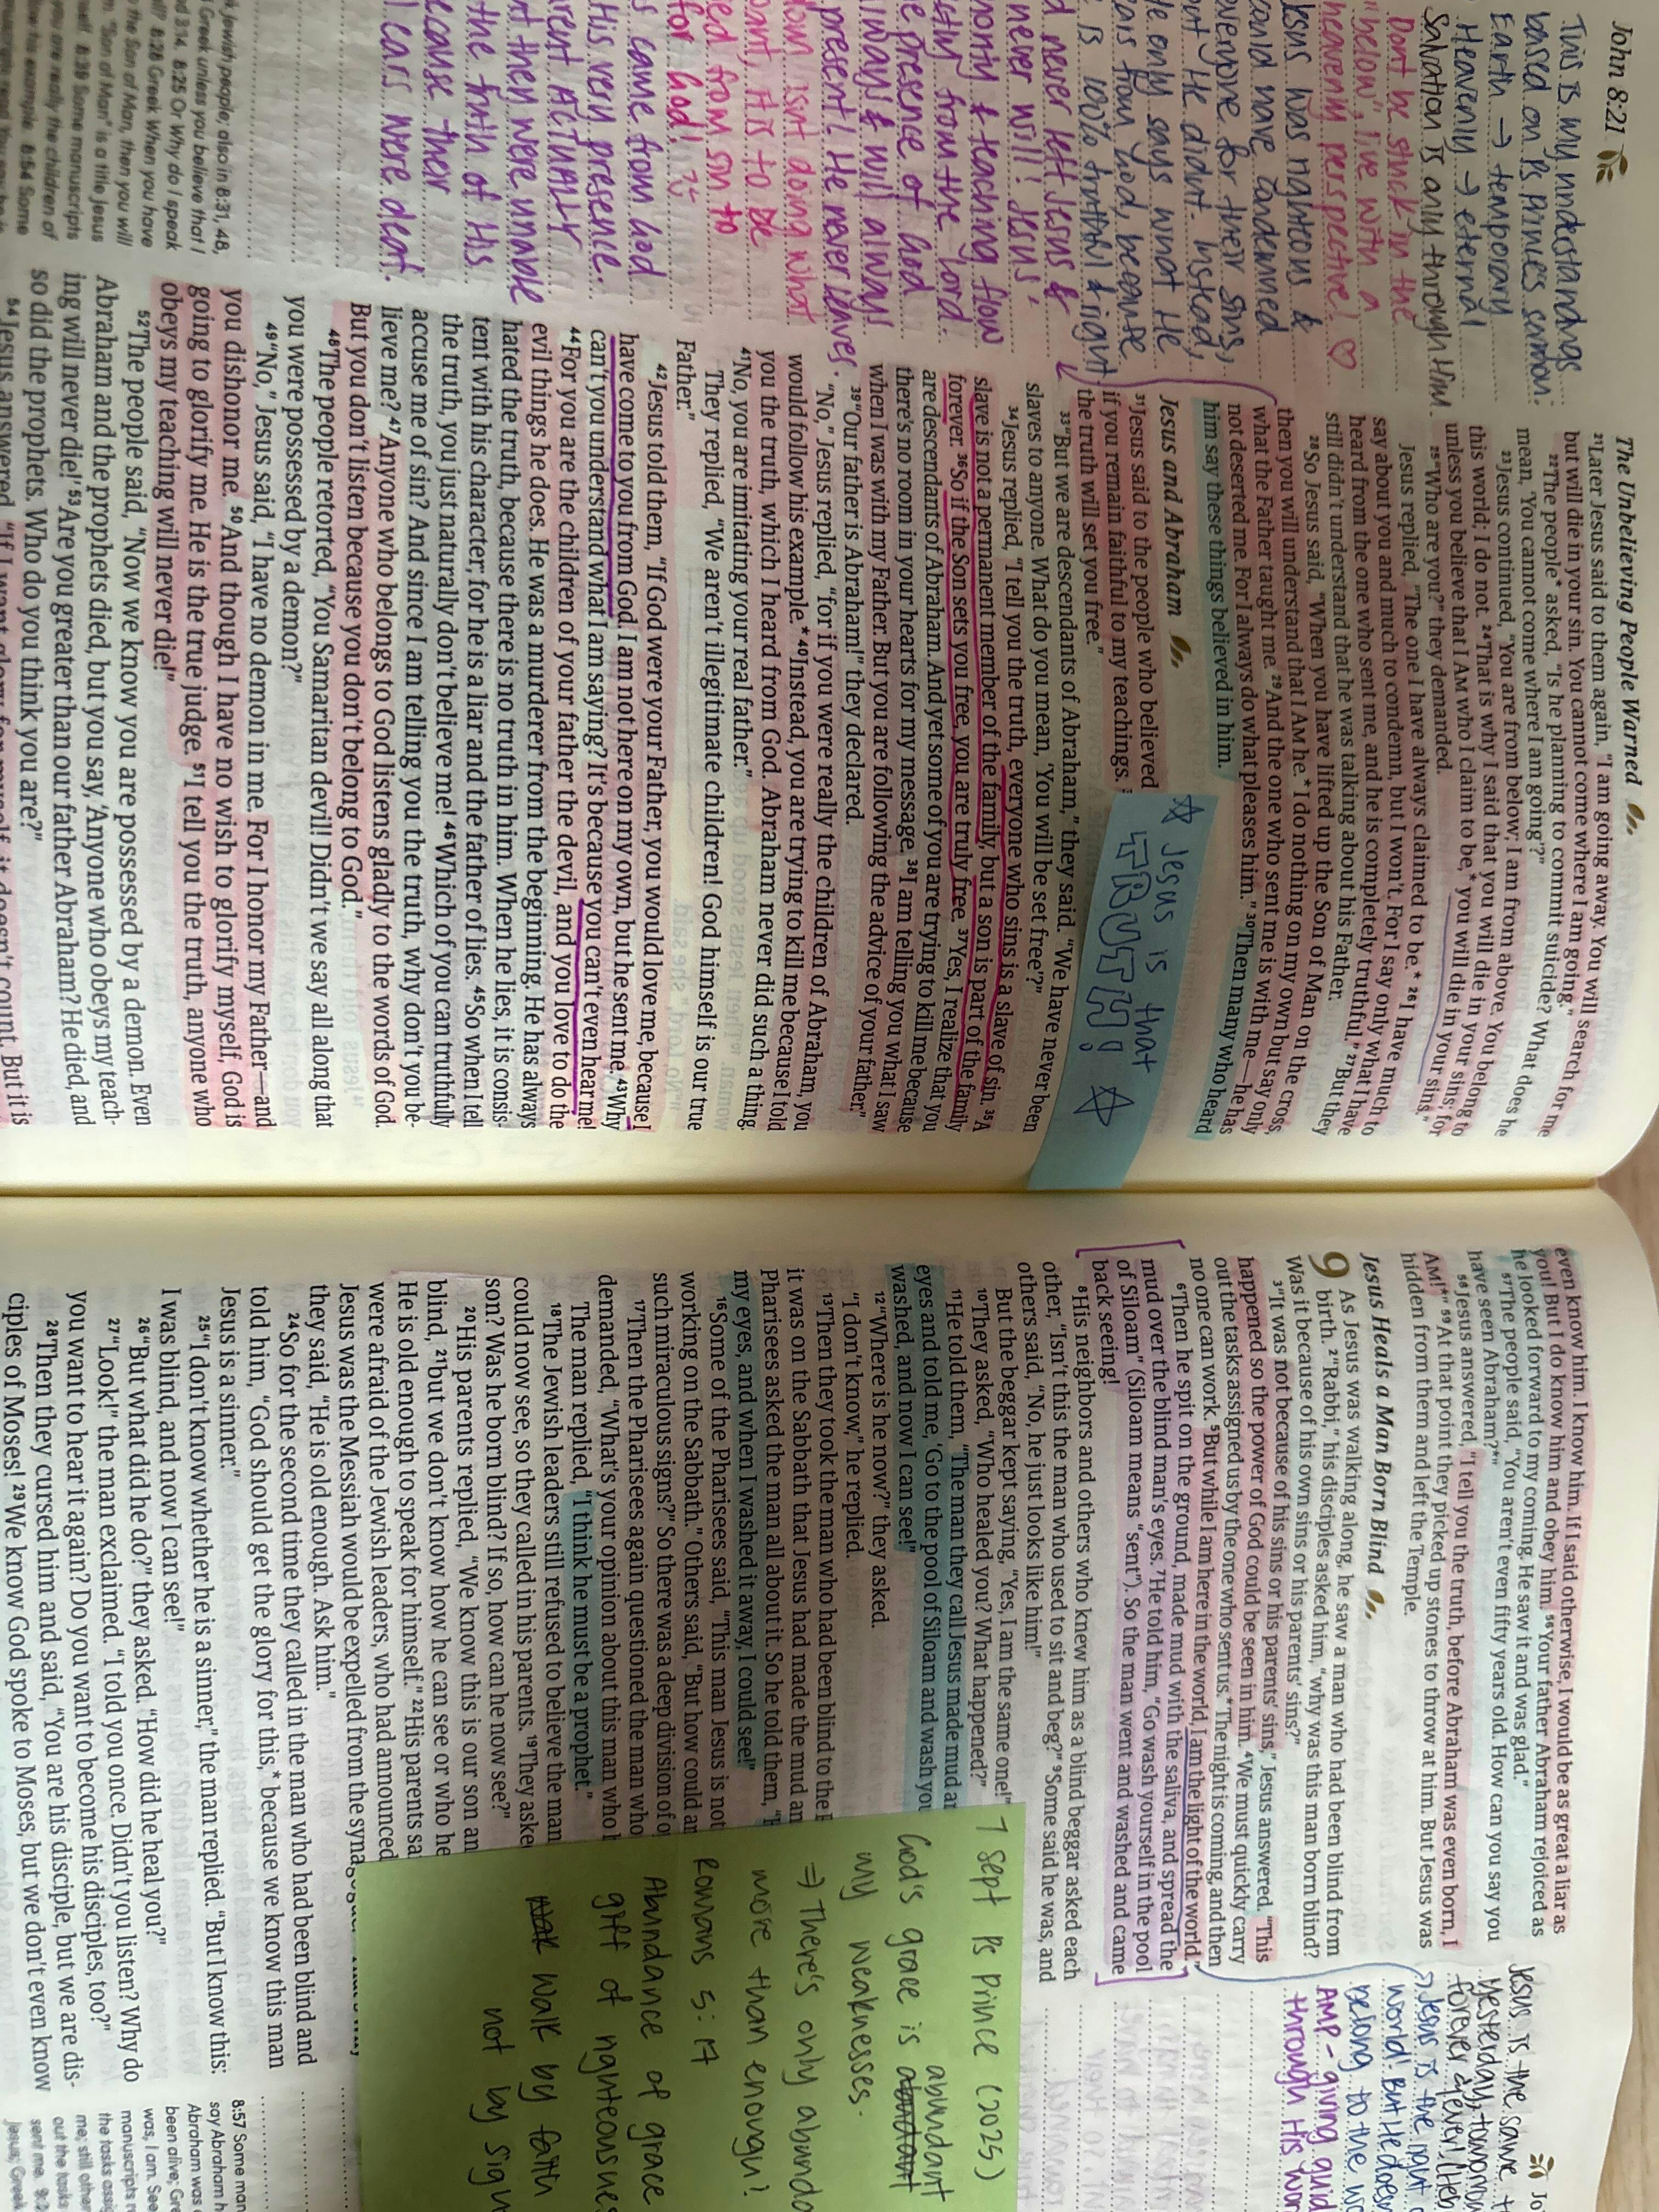 John 8:21
This is my understandings
based on Ps Princes sermon:
Earth → temporary
Heavenly → eternal
Salvation is only through Him.
Dont be stuck in the
"below", live with a
heavenly perspective! ♡
Jesus was righteous &
could have condemned
everyone for their sins,
but He didnt. Instead,
He only says what He
hears from God, because
is 100% truthful & right
d never left Jesus &
never will! Jesus'
hority & teaching flow
ctly from the Lord.
e presence of God
lways & will always
present! He never leaves.
dom isnt doing what
want, it is to be
ed from sin to
for God!
s came from God
His very presence.
rent ACTUALLY
nt they were unable
the truth of His
ecause their
l ears were deaf.
k Jewish people; also in 8:31, 48,
Greek unless you believe that I
d 3:14. 8:25 Or Why do I speak
ll? 8:28 Greek When you have
the Son of Man, then you will
"Son of Man" is a title Jesus
self. 8:39 Some manuscripts
you are really the children of
ow his example. 8:54 Some
The Unbelieving People Warned
21 Later Jesus said to them again, "I am going away. You will search for me
but will die in your sin. You cannot come where I am going."
22 The people* asked, "Is he planning to commit suicide? What does he
mean, 'You cannot come where I am going'?"
23 Jesus continued, "You are from below; I am from above. You belong to
this world; I do not. 24 That is why I said that you will die in your sins; for
unless you believe that I AM who I claim to be,* you will die in your sins."
25 "Who are you?" they demanded.
Jesus replied, "The one I have always claimed to be.* 26 I have much to
say about you and much to condemn, but I won't. For I say only what I have
heard from the one who sent me, and he is completely truthful." 27 But they
still didn't understand that he was talking about his Father.
28 So Jesus said, "When you have lifted up the Son of Man on the cross,
then you will understand that I AM he.* I do nothing on my own but say only
what the Father taught me. 29 And the one who sent me is with me—he has
not deserted me. For I always do what pleases him." 30 Then many who heard
him say these things believed in him.
Jesus and Abraham
31 Jesus said to the people who believed
if you remain faithful to my teachings.
the truth will set you free."
☆ Jesus is that
TRUTH! ☆
33 "But we are descendants of Abraham," they said. "We have never been
slaves to anyone. What do you mean, 'You will be set free'?"
34 Jesus replied, "I tell you the truth, everyone who sins is a slave of sin. 35 A
slave is not a permanent member of the family, but a son is part of the family
forever. 36 So if the Son sets you free, you are truly free. 37 Yes, I realize that you
are descendants of Abraham. And yet some of you are trying to kill me because
there's no room in your hearts for my message. 38 I am telling you what I saw
when I was with my Father. But you are following the advice of your father."
39 "Our father is Abraham!" they declared.
"No," Jesus replied, "for if you were really the children of Abraham, you
would follow his example.* 40 Instead, you are trying to kill me because I told
you the truth, which I heard from God. Abraham never did such a thing.
41 No, you are imitating your real father."
They replied, "We aren't illegitimate children! God himself is our true
Father."
42 Jesus told them, "If God were your Father, you would love me, because I
have come to you from God. I am not here on my own, but he sent me. 43 Why
can't you understand what I am saying? It's because you can't even hear me!
44 For you are the children of your father the devil, and you love to do the
evil things he does. He was a murderer from the beginning. He has always
hated the truth, because there is no truth in him. When he lies, it is consis-
tent with his character; for he is a liar and the father of lies. 45 So when I tell
the truth, you just naturally don't believe me! 46 Which of you can truthfully
accuse me of sin? And since I am telling you the truth, why don't you be-
lieve me? 47 Anyone who belongs to God listens gladly to the words of God.
But you don't listen because you don't belong to God."
48 The people retorted, "You Samaritan devil! Didn't we say all along that
you were possessed by a demon?"
49 "No," Jesus said, "I have no demon in me. For I honor my Father—and
you dishonor me. 50 And though I have no wish to glorify myself, God is
going to glorify me. He is the true judge. 51 I tell you the truth, anyone who
obeys my teaching will never die!"
52 The people said, "Now we know you are possessed by a demon. Even
Abraham and the prophets died, but you say, 'Anyone who obeys my teach-
ing will never die!' 53 Are you greater than our father Abraham? He died, and
so did the prophets. Who do you think you are?"
54 Jesus answered, "If I want glory for myself, it doesn't count. But it is
even know him. I know him. If I said otherwise, I would be as great a liar as
you! But I do know him and obey him. 56 Your father Abraham rejoiced as
he looked forward to my coming. He saw it and was glad."
57 The people said, "You aren't even fifty years old. How can you say you
have seen Abraham?*"
58 Jesus answered, "I tell you the truth, before Abraham was even born, I
AM!*" 59 At that point they picked up stones to throw at him. But Jesus was
hidden from them and left the Temple.
Jesus Heals a Man Born Blind
9 As Jesus was walking along, he saw a man who had been blind from
birth. 2 "Rabbi," his disciples asked him, "why was this man born blind?
Was it because of his own sins or his parents' sins?"
3 "It was not because of his sins or his parents' sins," Jesus answered. "This
happened so the power of God could be seen in him. 4 We must quickly carry
out the tasks assigned us by the one who sent us.* The night is coming, and then
no one can work. 5 But while I am here in the world, I am the light of the world."
6 Then he spit on the ground, made mud with the saliva, and spread the
mud over the blind man's eyes. 7 He told him, "Go wash yourself in the pool
of Siloam" (Siloam means "sent"). So the man went and washed and came
back seeing!
8 His neighbors and others who knew him as a blind beggar asked each
other, "Isn't this the man who used to sit and beg?" 9 Some said he was, and
others said, "No, he just looks like him!"
But the beggar kept saying, "Yes, I am the same one!"
10 They asked, "Who healed you? What happened?"
11 He told them, "The man they call Jesus made mud an
eyes and told me, 'Go to the pool of Siloam and wash you
washed, and now I can see!"
12 "Where is he now?" they asked.
"I don't know," he replied.
13 Then they took the man who had been blind to the P
it was on the Sabbath that Jesus had made the mud an
Pharisees asked the man all about it. So he told them, "H
my eyes, and when I washed it away, I could see!"
16 Some of the Pharisees said, "This man Jesus is not
working on the Sabbath." Others said, "But how could an
such miraculous signs?" So there was a deep division of o
17 Then the Pharisees again questioned the man who
demanded, "What's your opinion about this man who h
The man replied, "I think he must be a prophet."
18 The Jewish leaders still refused to believe the man
could now see, so they called in his parents. 19 They aske
son? Was he born blind? If so, how can he now see?"
20 His parents replied, "We know this is our son an
blind, 21 but we don't know how he can see or who he
He is old enough to speak for himself." 22 His parents sa
were afraid of the Jewish leaders, who had announced
Jesus was the Messiah would be expelled from the synag
they said, "He is old enough. Ask him."
24 So for the second time they called in the man who had been blind and
told him, "God should get the glory for this,* because we know this man
Jesus is a sinner."
25 "I don't know whether he is a sinner," the man replied. "But I know this:
I was blind, and now I can see!"
26 "But what did he do?" they asked. "How did he heal you?"
27 "Look!" the man exclaimed. "I told you once. Didn't you listen? Why do
you want to hear it again? Do you want to become his disciples, too?"
28 Then they cursed him and said, "You are his disciple, but we are dis-
ciples of Moses! 29 We know God spoke to Moses, but we don't even know
7 Sept Ps Prince (2025)
God's grace is abundant
my weaknesses.
⇒ There's only abunda
more than enough!
Romans 5:17
Abundance of grace
gift of righteousnes
walk by faith
not by sigh
Jo
Jesus is the same t
yesterday, tomorrow
forever & ever! (Heb
→ Jesus is the light o
world! But He doesn
belong to the wo
AMP - giving guid
through His wor
8:57 Some man
say Abraham h
Abraham was
been alive; Gre
was, I am. See
manuscripts r
the tasks assi
me; still other
out the tasks
sent me. 9:2
Jesus; Greek